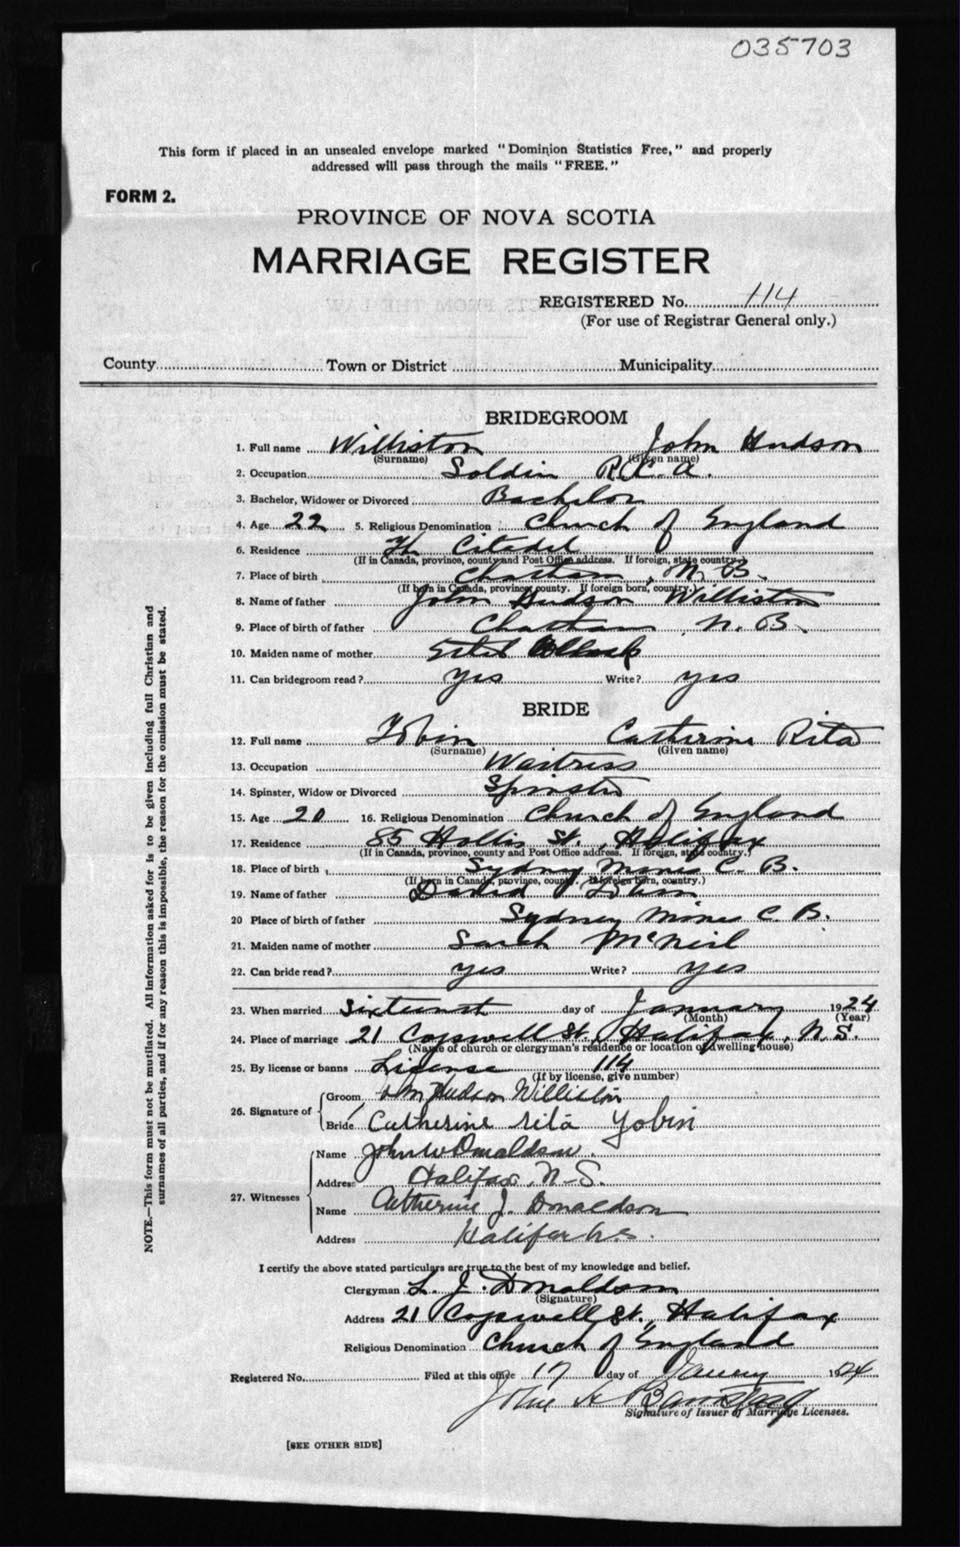 035703
This form if placed in an unsealed envelope marked "Dominion Statistics Free," and properly
addressed will pass through the mails "FREE."
FORM 2.
PROVINCE OF NOVA SCOTIA
MARRIAGE REGISTER
REGISTERED No. 114
(For use of Registrar General only.)
County Town or District Municipality
BRIDEGROOM
1. Full name Williston John Hudson
(Surname) (Given name)
2. Occupation Soldier R.C.A.
3. Bachelor, Widower or Divorced Bachelor
4. Age 22 5. Religious Denomination Church of England
6. Residence The Citadel
(If in Canada, province, county and Post Office address. If foreign, state country.)
7. Place of birth Chatham, N.B.
(If born in Canada, province, county. If foreign born, country.)
8. Name of father John Hudson Williston
9. Place of birth of father Chatham N.B.
10. Maiden name of mother
11. Can bridegroom read? yes Write? yes
BRIDE
12. Full name Tobin Catherine Rita
(Surname) (Given name)
13. Occupation Waitress
14. Spinster, Widow or Divorced Spinster
15. Age 20 16. Religious Denomination Church of England
17. Residence 85 Hollis St., Halifax
(If in Canada, province, county and Post Office address. If foreign, state country.)
18. Place of birth Sydney Mines C.B.
(If born in Canada, province, county. If foreign born, country.)
19. Name of father David Tobin
20 Place of birth of father Sydney Mines C.B.
21. Maiden name of mother Sarah McNeil
22. Can bride read? yes Write? yes
23. When married Sixteenth day of January 1924
(Month) (Year)
24. Place of marriage 21 Cogswell St., Halifax, N.S.
(Name of church or clergyman's residence or location of dwelling house)
25. By license or banns License 114
(If by license, give number)
26. Signature of
Groom Hudson Williston
Bride Catherine rita Tobin
27. Witnesses
Name John W Donaldson.
Address Halifax, N.S.
Name Catherine J. Donaldson
Address Halifax N.S.
I certify the above stated particulars are true to the best of my knowledge and belief.
Clergyman L. J. Donaldson
(Signature)
Address 21 Cogswell St., Halifax
Religious Denomination Church of England
Registered No. Filed at this office 17 day of January 1924
John A
Signature of Issuer of Marriage Licenses.
[SEE OTHER SIDE]
NOTE.—This form must not be mutilated. All information asked for is to be given including full Christian and
surnames of all parties, and if for any reason this is impossible, the reason for the omission must be stated.